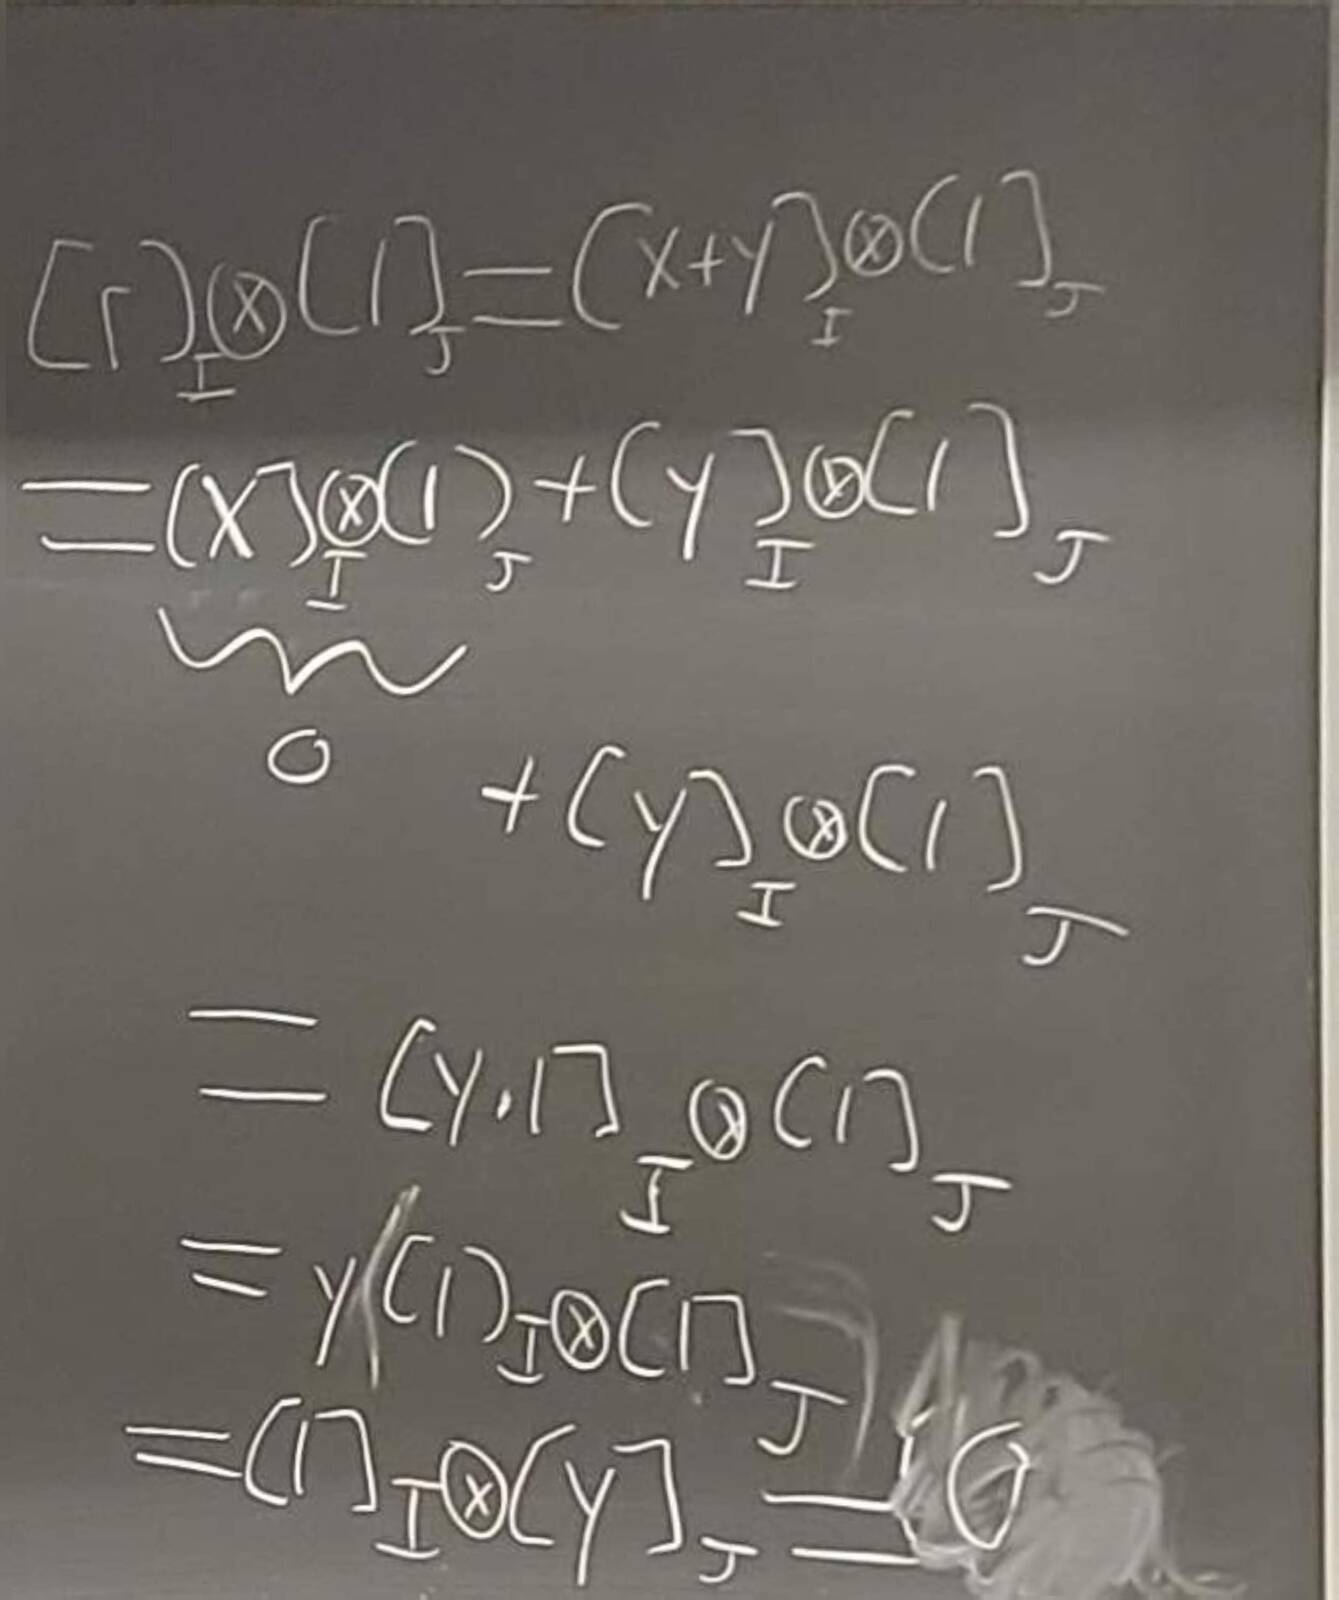 [r]_I ⊗ [1]_J = [x+y]_I ⊗ [1]_J
= [x]_I ⊗ [1]_J + [y]_I ⊗ [1]_J
0
+ [y]_I ⊗ [1]_J
= [y·1]_I ⊗ [1]_J
= y[1]_I ⊗ [1]_J
= [1]_I ⊗ [y]_J = 0